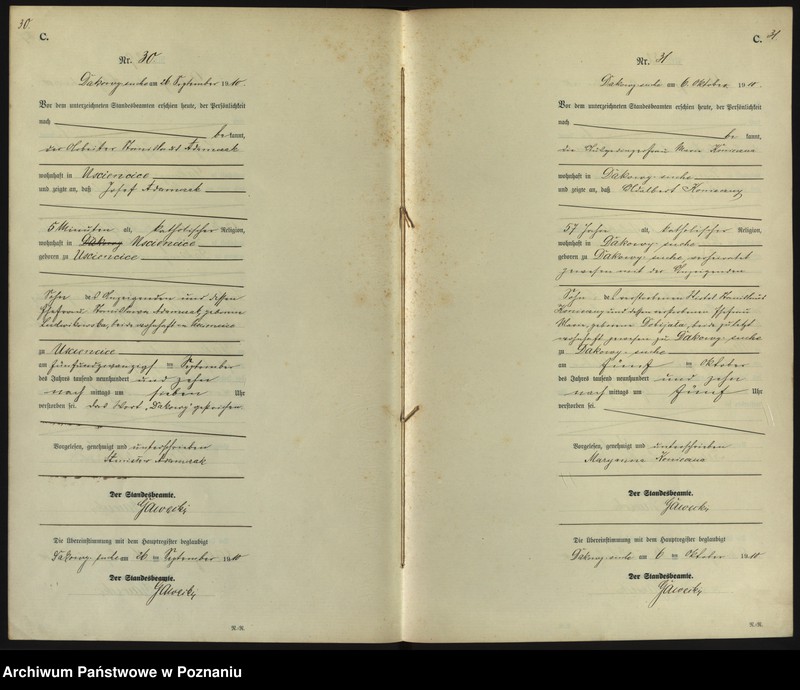 30.
C.
Nr. 30
Dakowy-suche am 26 September 1910.
Vor dem unterzeichneten Standesbeamten erschien heute, der Persönlichkeit
nach
be kannt,
der Arbeiter Adamczak
wohnhaft in Usciencice
und zeigte an, daß Josef Adamczak
5 Minuten alt, katholischer Religion,
wohnhaft in Dakowy Usciencice
geboren zu Usciencice
Sohn des Anzeigenden und dessen
Ehefrau Stanislawa Adamczak, geborene
beide wohnhaft in Usciencice
zu Usciencice
am fünfundzwanzigsten September
des Jahres tausend neunhundert und zehn
nach mittags um sieben Uhr
verstorben sei. Das Wort „Dakowy" gestrichen.
Vorgelesen, genehmigt und unterschrieben
Adamczak
Der Standesbeamte.
Die Übereinstimmung mit dem Hauptregister beglaubigt
Dakowy suche am 26 ten September 1910
Der Standesbeamte.
R.-R.
C.
31.
Nr. 31
Dakowy-suche am 6. Oktober 1910.
Vor dem unterzeichneten Standesbeamten erschien heute, der Persönlichkeit
nach
be kannt,
die Marie
wohnhaft in Dakowy-suche
und zeigte an, daß Adalbert
57 Jahre alt, katholischer Religion,
wohnhaft in Dakowy-suche
geboren zu Dakowy-suche, verheiratet
gewesen mit der Anzeigenden
Sohn des verstorbenen
und dessen verstorbenen Ehefrau
Marie, geborene beide zuletzt
wohnhaft gewesen zu Dakowy-suche
zu Dakowy-suche
am fünf ten Oktober
des Jahres tausend neunhundert und zehn
nach mittags um fünf Uhr
verstorben sei.
Vorgelesen, genehmigt und unterschrieben
Maryanna
Der Standesbeamte.
Die Übereinstimmung mit dem Hauptregister beglaubigt
Dakowy-suche am 6 ten Oktober 1910
Der Standesbeamte.
R.-R.
Archiwum Państwowe w Poznaniu